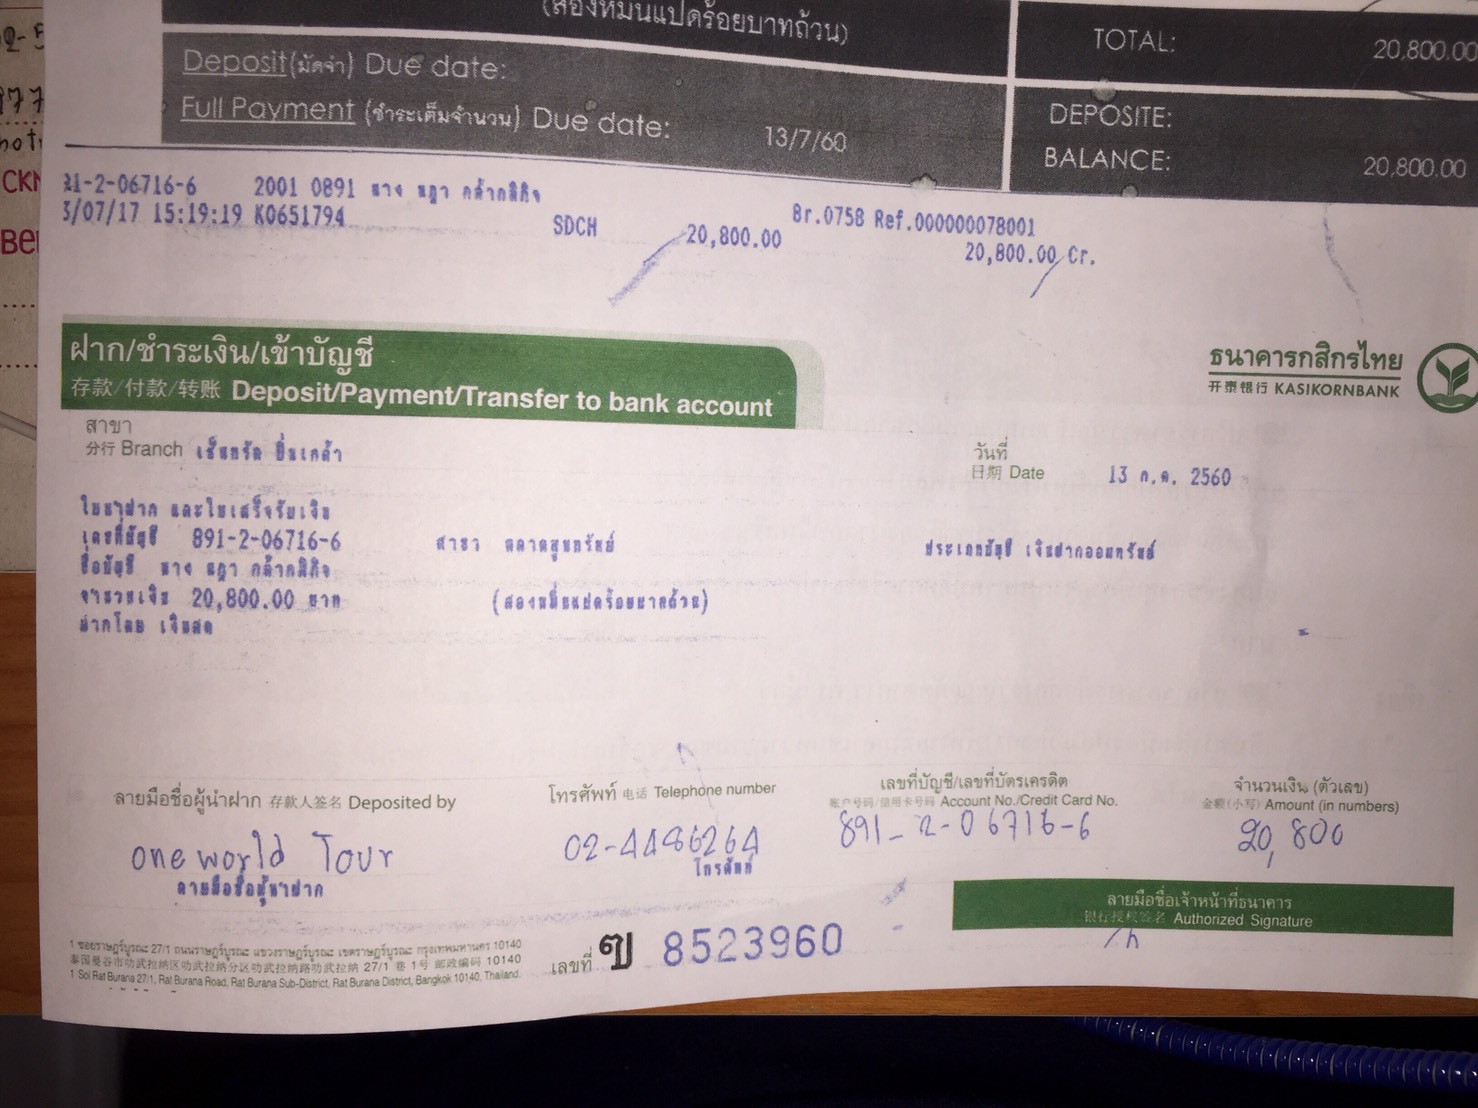 (สองหมื่นแปดร้อยบาทถ้วน)
TOTAL: 20,800.00
Deposit(มัดจำ) Due date:
Full Payment (ชำระเต็มจำนวน) Due date: 13/7/60
DEPOSITE:
BALANCE: 20,800.00
91-2-06716-6 2001 0891 นาง นฎา กล้ากสิกิจ
3/07/17 15:19:19 K0651794 SDCH 20,800.00 Br.0758 Ref.000000078001
20,800.00 Cr.
ฝาก/ชำระเงิน/เข้าบัญชี
存款/付款/转账 Deposit/Payment/Transfer to bank account
ธนาคารกสิกรไทย
开泰银行 KASIKORNBANK
สาขา
分行 Branch เซ็นทรัล ปิ่นเกล้า
วันที่
日期 Date 13 ก.ค. 2560
ใบนำฝาก และใบเสร็จรับเงิน
เลขที่บัญชี 891-2-06716-6 สาขา ตลาดสุนทรัพย์ ประเภทบัญชี เงินฝากออมทรัพย์
ชื่อบัญชี นาง นฎา กล้ากสิกิจ
จำนวนเงิน 20,800.00 บาท (สองหมื่นแปดร้อยบาทถ้วน)
ฝากโดย เงินสด
ลายมือชื่อผู้นำฝาก 存款人签名 Deposited by
โทรศัพท์ 电话 Telephone number
เลขที่บัญชี/เลขที่บัตรเครดิต
账户号码/信用卡号码 Account No./Credit Card No.
จำนวนเงิน (ตัวเลข)
金额(小写) Amount (in numbers)
one world Tour
02-4486264
891-2-06716-6
20,800
ลายมือชื่อผู้นำฝาก
โทรศัพท์
ลายมือชื่อเจ้าหน้าที่ธนาคาร
银行授权签名 Authorized Signature
1 ซอยราษฎร์บูรณะ 27/1 ถนนราษฎร์บูรณะ แขวงราษฎร์บูรณะ เขตราษฎร์บูรณะ กรุงเทพมหานคร 10140
泰国曼谷市叻武拉纳区叻武拉纳分区叻武拉纳路叻武拉纳 27/1 巷 1号 邮政编码 10140
1 Soi Rat Burana 27/1, Rat Burana Road, Rat Burana Sub-District, Rat Burana District, Bangkok 10140, Thailand.
เลขที่ ฃ 8523960